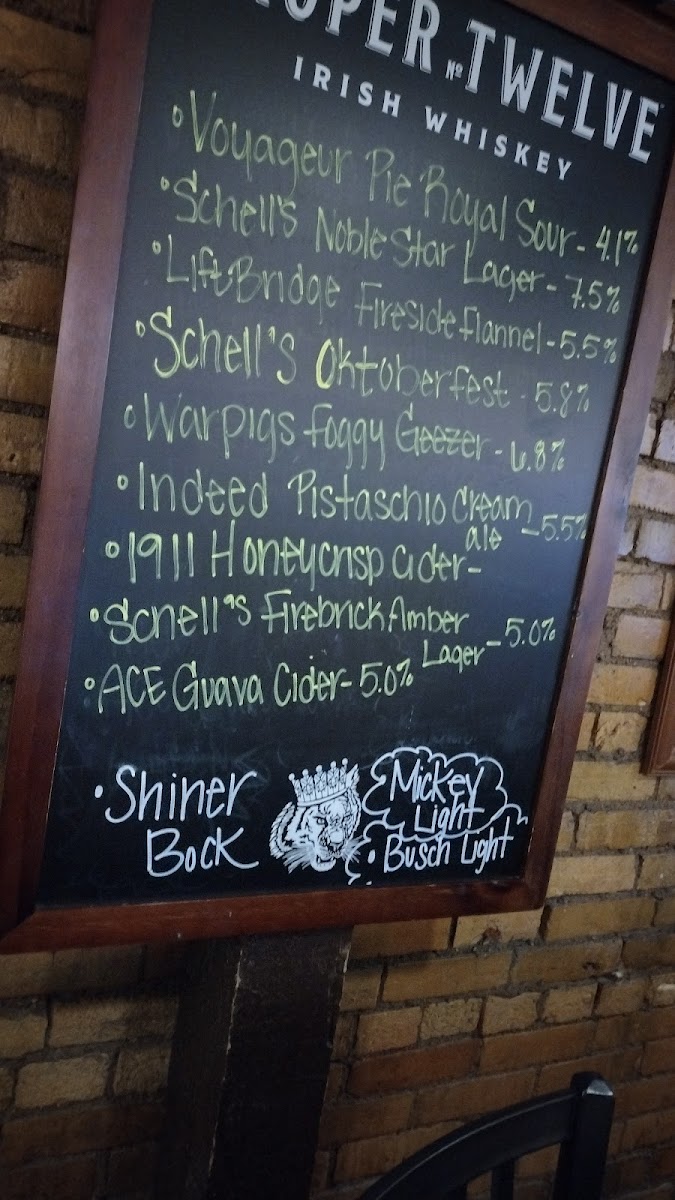 PER Nº TWELVE
IRISH WHISKEY
• Voyageur Pie Royal Sour - 4.1%
• Schell's Noble Star Lager - 7.5%
• Lift Bridge Fireside Flannel - 5.5%
• Schell's Oktoberfest - 5.8%
• Warpigs Foggy Geezer - 6.8%
• Indeed Pistaschio Cream
ale - 5.5%
• 1911 Honeycrisp Cider -
• Schell's Firebrick Amber
Lager - 5.0%
• ACE Guava Cider - 5.0%
• Shiner
Bock
Mickey
Light
• Busch Light